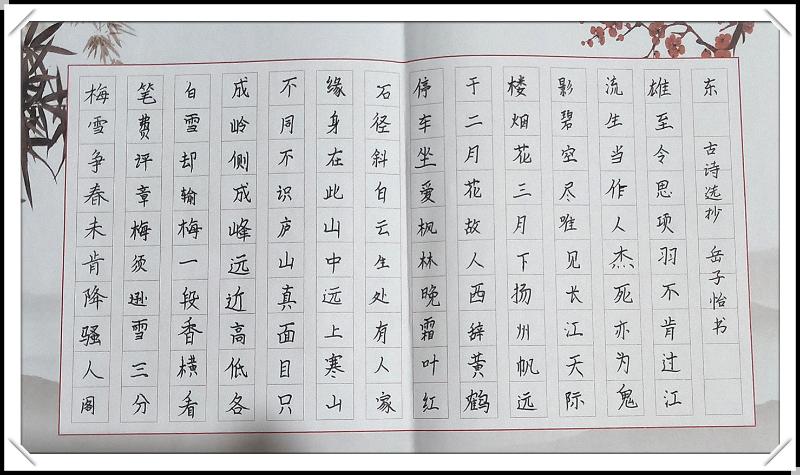 梅雪争春未肯降骚人阁
笔费评章梅须逊雪三分
白雪却输梅一段香横看
成岭侧成峰远近高低各
不同不识庐山真面目只
缘身在此山中远上寒山
石径斜白云生处有人家
停车坐爱枫林晚霜叶红
于二月花故人西辞黄鹤
楼烟花三月下扬州帆远
影碧空尽唯见长江天际
流生当作人杰死亦为鬼
雄至今思项羽不肯过江
东 古诗选抄 岳子怡书